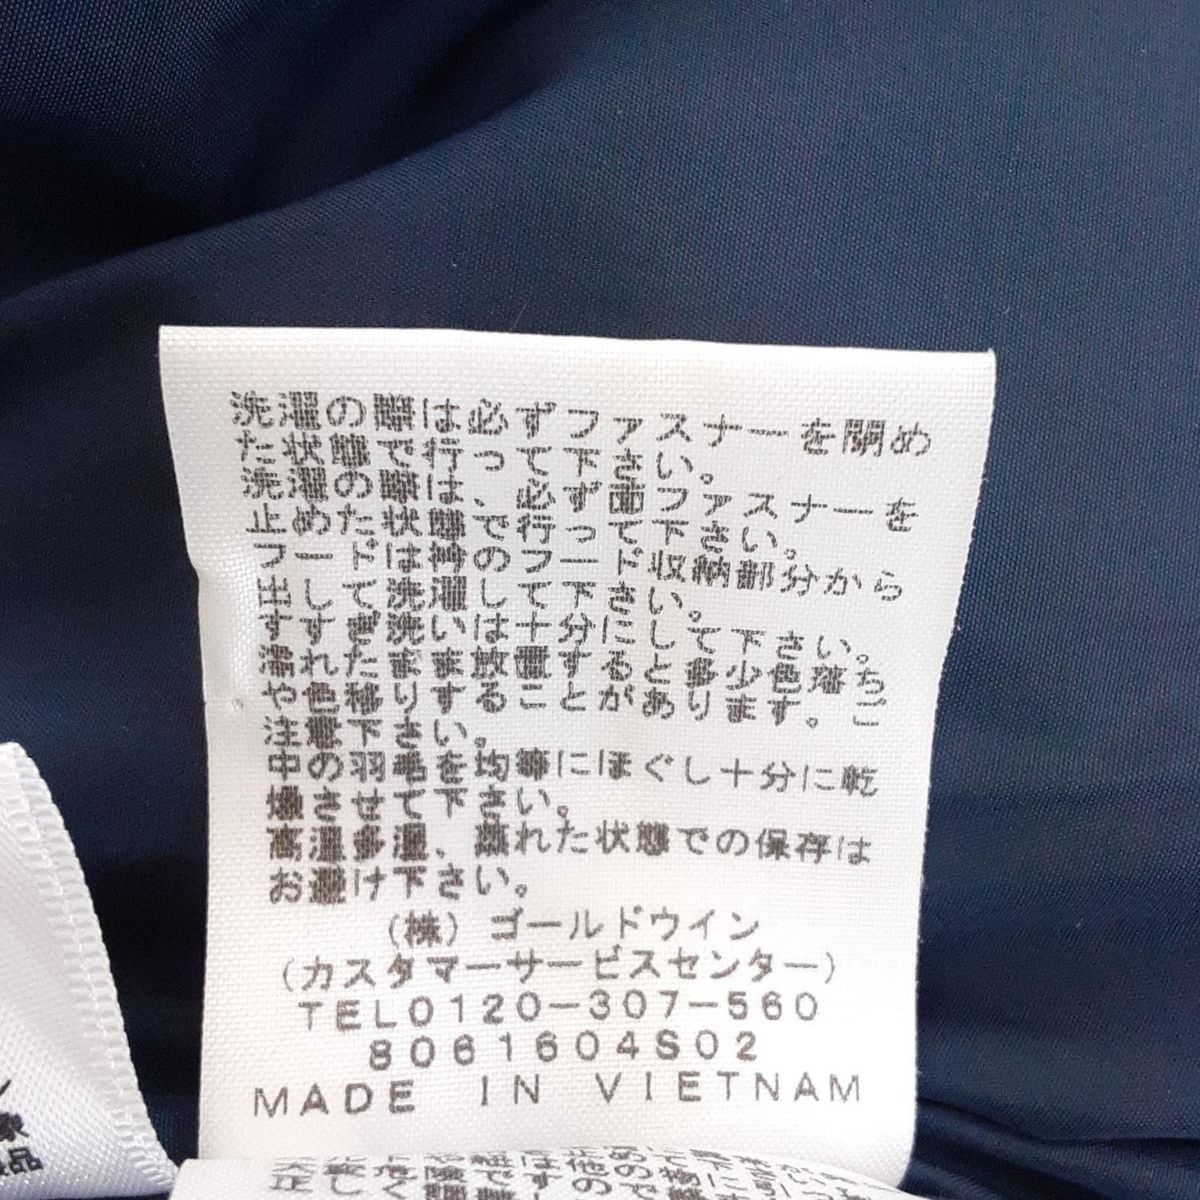 洗濯の際は必ずファスナーを閉め
た状態で行って下さい。
洗濯の際は、必ず面ファスナーを
止めた状態で行って下さい。
フードは衿のフード収納部分から
出して洗濯して下さい。
すすぎ洗いは十分にして下さい。
濡れたまま放置すると多少色落ち
や色移りすることがあります。ご
注意下さい。
中の羽毛を均等にほぐし十分に乾
燥させて下さい。
高温多湿、蒸れた状態での保存は
お避け下さい。
(株)ゴールドウイン
(カスタマーサービスセンター)
TEL0120-307-560
8061604S02
MADE IN VIETNAM